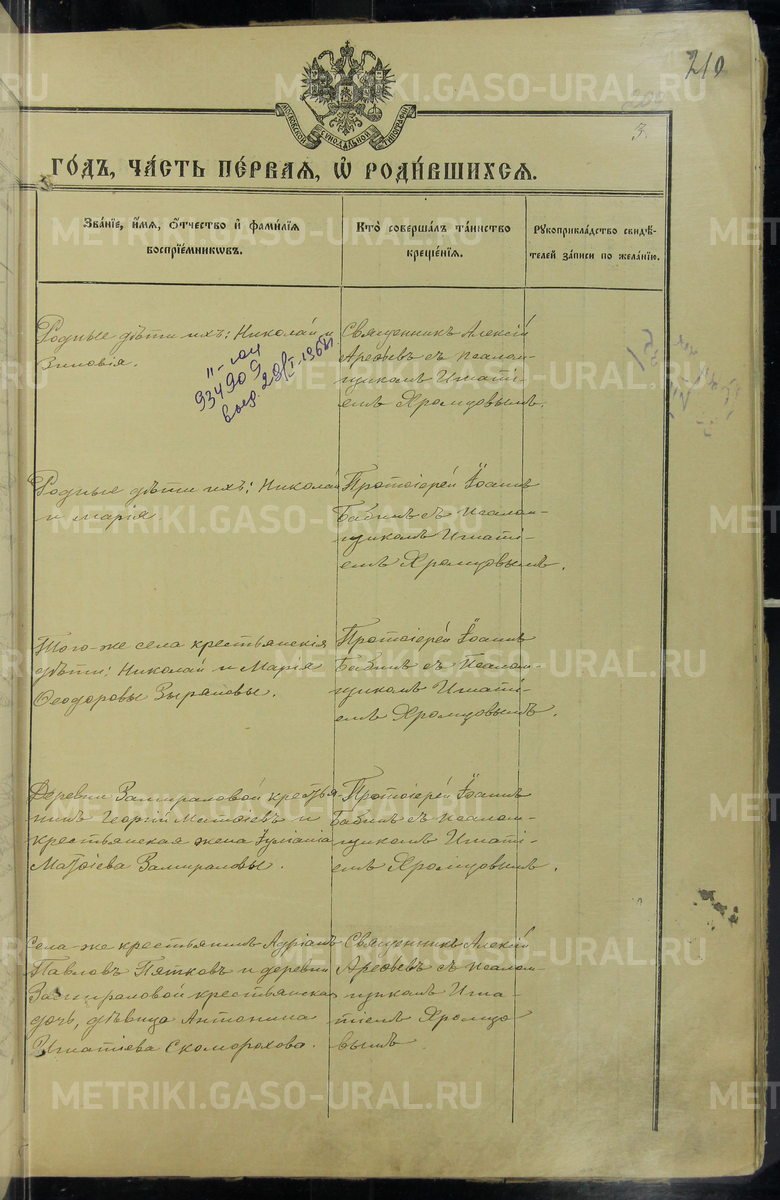 210
3.
МОСКОВСКОЙ СИНОДАЛЬНОЙ ТИПОГРАФІИ
ГОДЪ, ЧАСТЬ ПЕРВАЯ, Ѡ РОДИВШИХСЯ.
Званіе, имя, отчество и фамилія воспріемниковъ.
Кто совершалъ таинство крещенія.
Рукоприкладство свидѣтелей записи по желанію.
Родные дѣти ихъ: Николай и
Зиновія.
II-юи
934909
выд. 29/I.1968
Священникъ Алексій
Арефьевъ съ псалом-
щикомъ Игнаті-
емъ Хромцовымъ.
Родные дѣти ихъ: Николай
и Марія
Протоіерей Іоаннъ
Бабинъ съ псалом-
щикомъ Игнаті-
емъ Хромцовымъ.
Того-же села крестьянскія
дѣти: Николай и Марія
Ѳеодоровы Зыряновы.
Протоіерей Іоаннъ
Бабинъ съ псалом-
щикомъ Игнаті-
емъ Хромцовымъ.
Деревни Замираловой крестья-
нинъ Георгій Матѳіевъ и
крестьянская жена Іуліанія
Матѳіева Замираловы.
Протоіерей Іоаннъ
Бабинъ съ псалом-
щикомъ Игнаті-
емъ Хромцовымъ.
Села-же крестьянинъ Адріанъ
Павловъ Пятковъ и деревни
Замираловой крестьянская
дочь, дѣвица Антонина
Игнатіева Скоморохова.
Священникъ Алексій
Арефьевъ съ псалом
щикомъ Игна-
тіемъ Хромцо
вымъ
METRIKI.GASO-URAL.RU